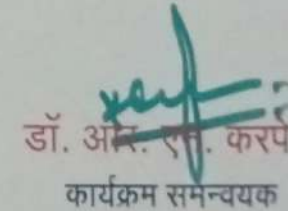 डॉ. आर. एस. करप
कार्यक्रम समन्वयक